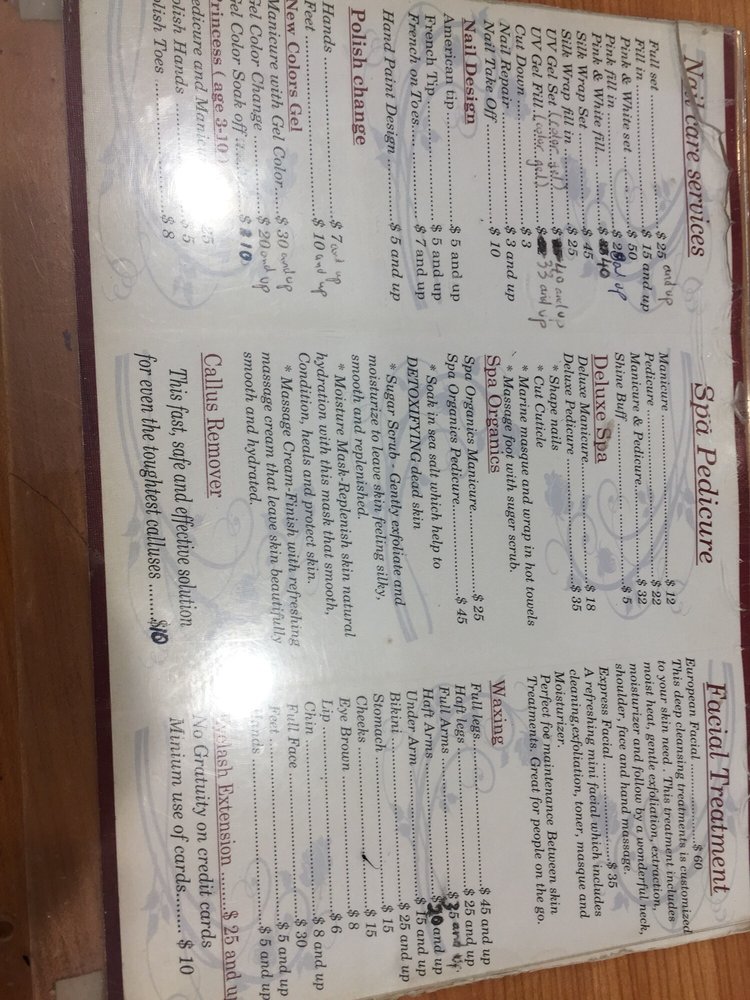 Nail care services
Full set ........ $ 25 and up
Fill in ........ $ 15 and up
Pink & White set ........ $ 50
Pink fill in ........ $ 20 and up
Pink & White fill ........ $ 40
Silk Wrap Set ........ $ 45
Silk Wrap fill in ........ $ 25
UV Gel Set (color gel) ........ $ 40 and up
UV Gel Fill (color gel) ........ $ 33 and up
Cut Down ........ $ 3
Nail Repair ........ $ 3 and up
Nail Take Off ........ $ 10
Nail Design
American tip ........ $ 5 and up
French Tip ........ $ 5 and up
French on Toes ........ $ 7 and up
Hand Paint Design ........ $ 5 and up
Polish change
Hands ........ $ 7 and up
Feet ........ $ 10 and up
New Colors Gel
Manicure with Gel Color ........ $ 30 and up
Gel Color Change ........ $ 20 and up
Gel Color Soak off ........ $ 10
Princess ( age 3-10)
Pedicure and Mani 25
Polish Hands ........ 5
Polish Toes ........ $ 8
Spa Pedicure
Manicure ........ $ 12
Pedicure ........ $ 22
Manicure & Pedicure ........ $ 32
Shine Buff ........ $ 5
Deluxe Spa
Deluxe Manicure ........ $ 18
Deluxe Pedicure ........ $ 35
* Shape nails
* Cut Cuticle
* Marine masque and wrap in hot towels
* Massage foot with suger scrub.
Spa Organics
Spa Organics Manicure ........ $ 25
Spa Organics Pedicure ........ $ 45
* Soak in sea salt which help to
DETOXIFYING dead skin
* Sugar Scrub - Gently exfoliate and
moisturize to leave skin feeling silky,
smooth and replenished.
* Moisture Mask-Replenish skin natural
hydration with this mask that smooth,
Condition, heals and protect skin.
* Massage Cream-Finish with refreshing
massage cream that leave skin beautifully
smooth and hydrated.
Callus Remover
This fast, safe and effective solution
for even the toughtest calluses ........ $10
Facial Treatment
European Facial ........ $ 60
This deep cleansing treatments is customized
to your skin need . This treatment includes
moist heat, gentle exfoliation, extraction,
moisturizer and follow by a wonderful neck,
shoulder, face and hand massage.
Express Facial ........ $ 35
A refreshing mini facial which includes
cleaning,exfoliation, toner, masque and
Moisturizer.
Perfect foe maintenance Between skin
Treatments. Great for people on the go.
Waxing
Full legs ........ $ 45 and up
Haft legs ........ $ 25 and up
Full Arms ........ $ 35 and up
Haft Arms ........ $ 30 and up
Under Arm ........ $ 15 and up
Bikini ........ $ 25 and up
Stomach ........ $ 15
Cheeks ........ $ 15
Eye Brown ........ $ 8
Lip ........ $ 6
Chin ........ $ 8 and up
Full Face ........ $ 30
Feet ........ $ 5 and up
Hands ........ $ 5 and up
Eyelash Extension ........ $ 25 and up
No Gratuity on credit cards
Minium use of cards ........ $ 10